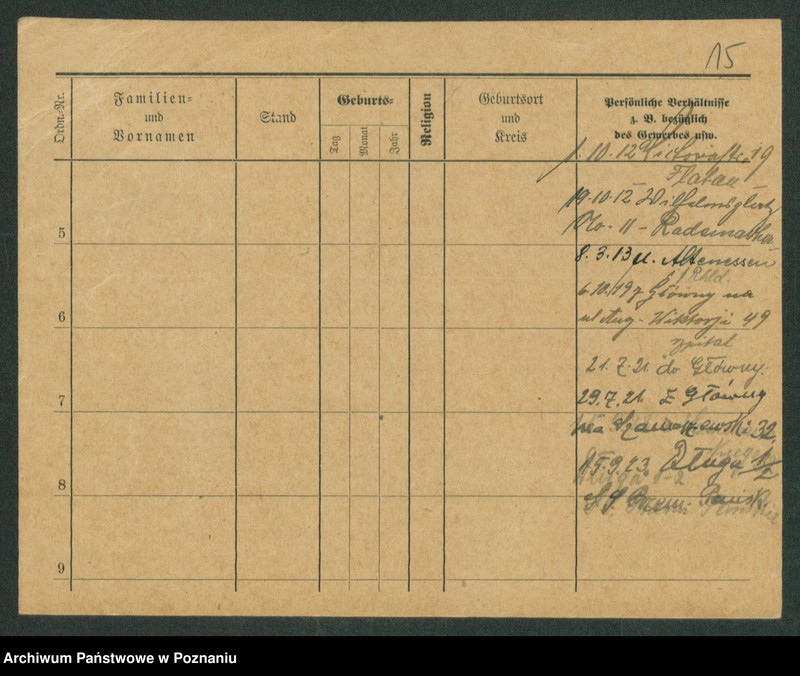 15
Ordn.-Nr.
Familien-
und
Vornamen
Stand
Geburts-
Tag
Monat
Jahr
Religion
Geburtsort
und
Kreis
Persönliche Verhältnisse
z. B. bezüglich
des Gewerbes usw.
1.10.12 Victoriastr. 19
Flatau
19.10.12 Wilhelmsplatz
No. 11 -
8.3.13 n. Altenessen
Rhld.
6.10.19 z Główny na
ul Aug-Wiktorji 49
szpital
21.7.21. do Główny.
29.7.21. z Główny
na Szamarzewski 32
15.9.23. Długa 1/2
S. S. Przem. Pańsk
5
6
7
8
9
Archiwum Państwowe w Poznaniu